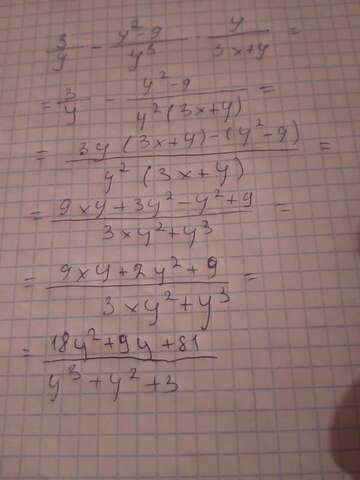 3/y - (y²-9)/y³ · y/(3x+y) =
= 3/y - (y²-9)/(y²(3x+y)) =
= (3y(3x+y)-(y²-9))/(y²(3x+y)) =
= (9xy+3y²-y²+9)/(3xy²+y³) =
= (9xy+2y²+9)/(3xy²+y³) =
= (18y²+9y+81)/(y³+y²+3)